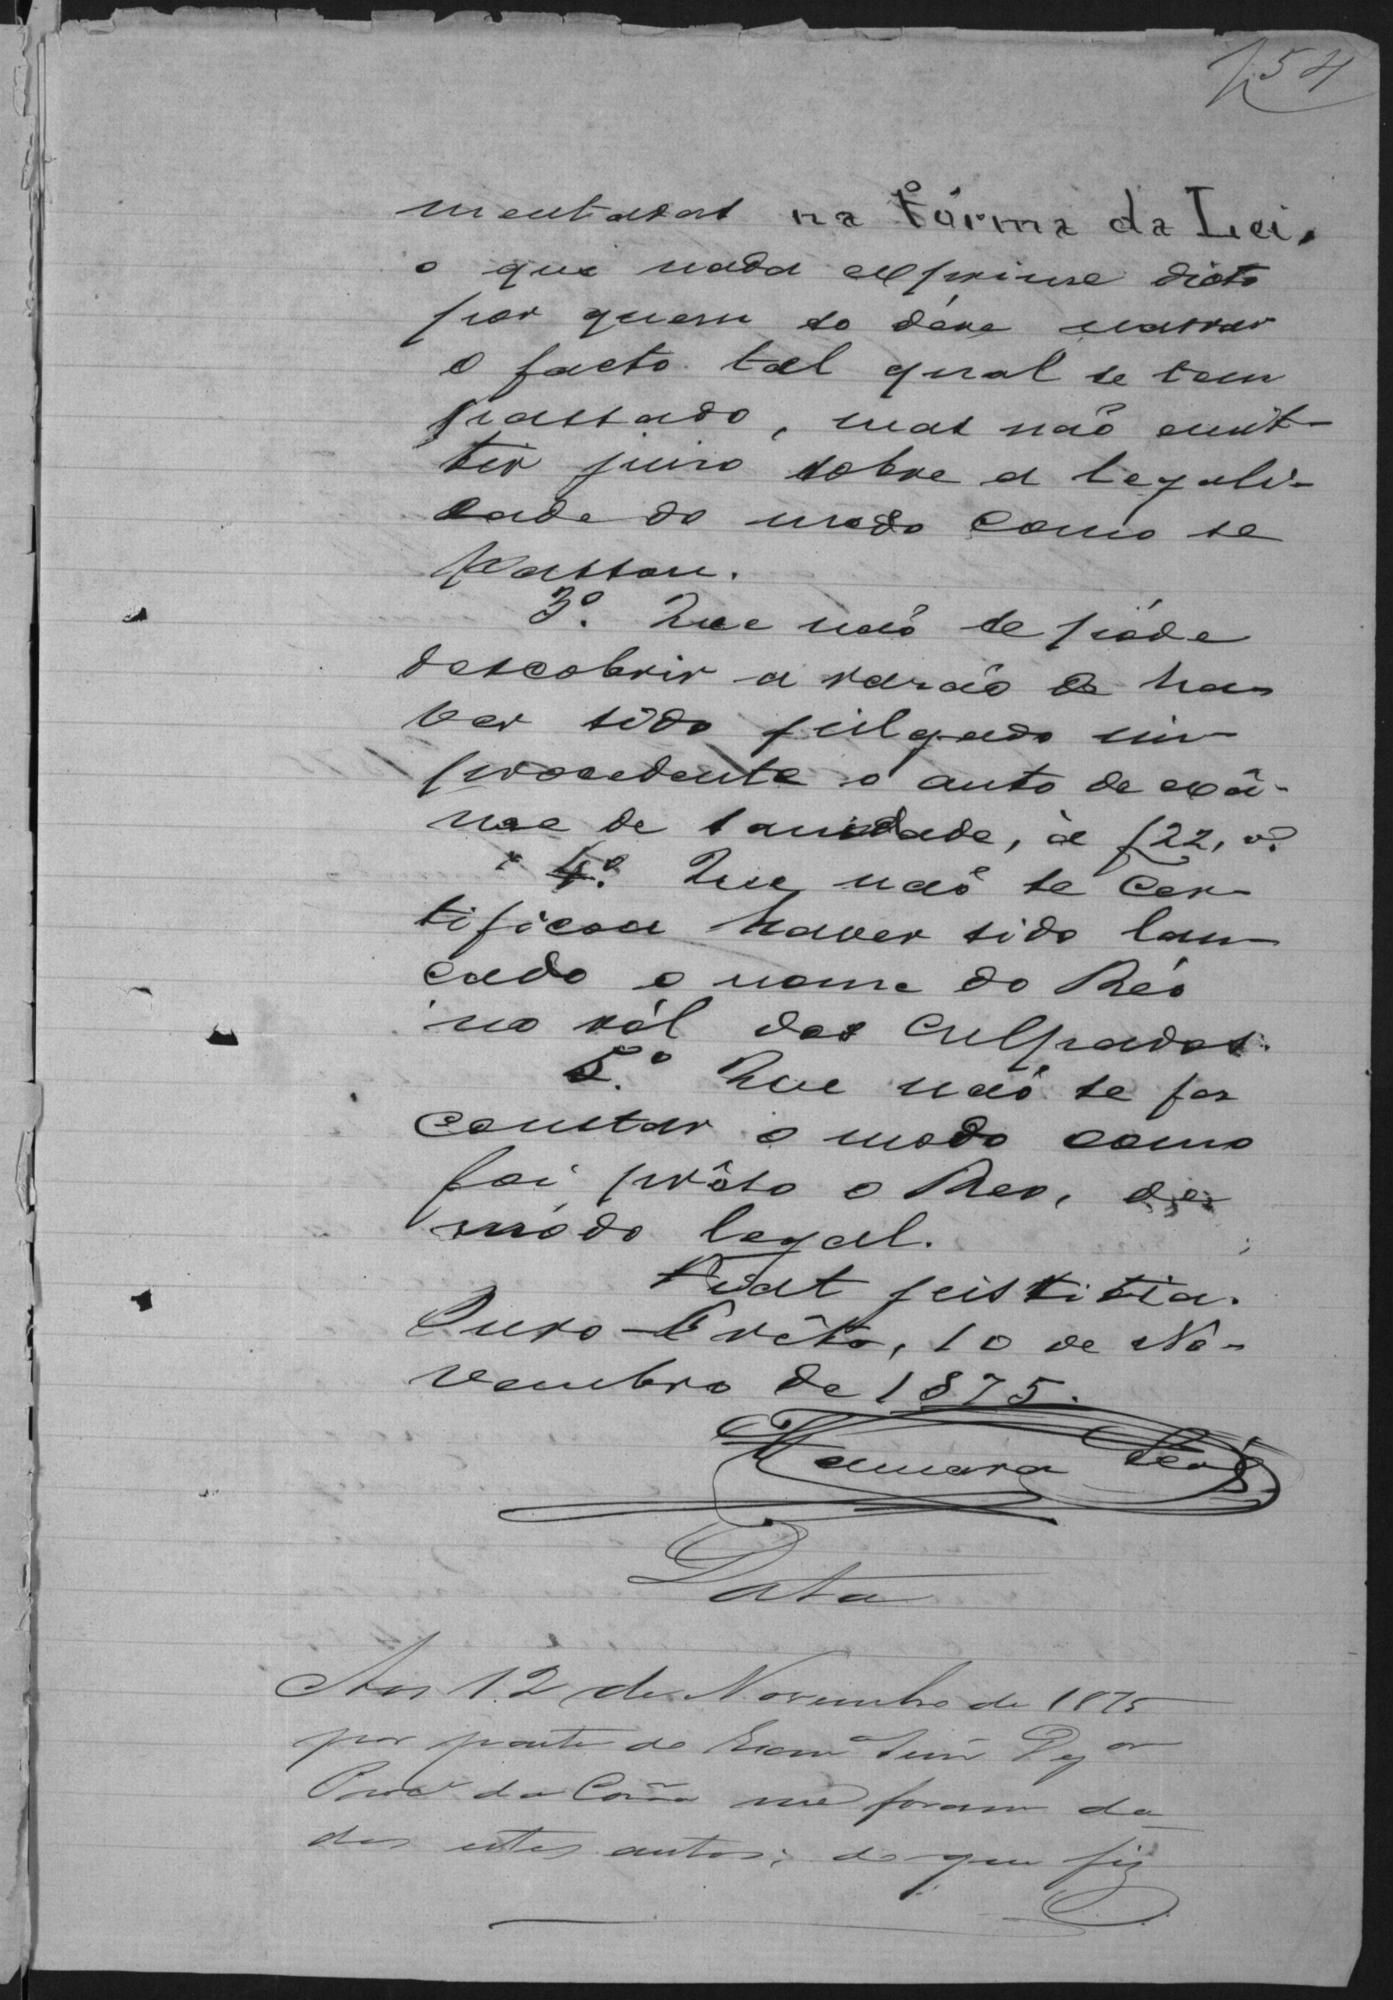 54
mentadas na fórma da Lei,
o que nada exprime dicto
por quem só déve narrar
o facto tal qual se tem
passado, mas não emit-
tir juiso sobre a legali-
dade do modo como se
passou.
3º. Que não se póde
descobrir a razão de ha-
ver sido julgado im-
procedente o auto de exâ-
me de sanidade, à f 22, v.
4º. Que não se cer-
tificou haver sido lan-
çado o nome do Réo
no ról dos culpados.
5º. Que não se faz
constar o modo como
foi prêso o Reo, de
módo legal.
Fiat justitia.
Ouro-Prêto, 10 de No-
vembro de 1875.
Camara Leal
Data
Aos 12 de Novembro de 1875
por parte do Exmº Senr Dezor
Procr da Corôa me foram da-
dos estes autos; do que fiz